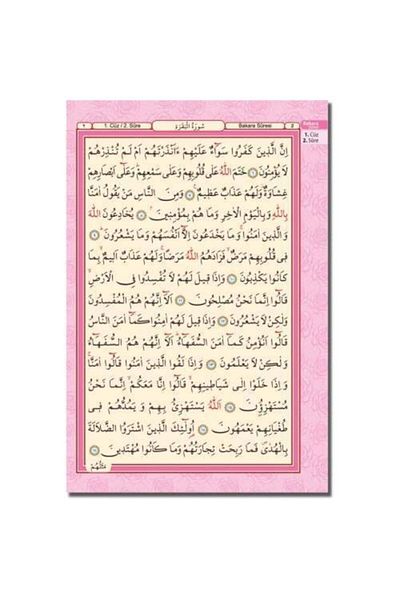 ١ 1. Cüz / 2. Sûre سُورَةُ الْبَقَرَةِ Bakara Sûresi 2
Bakara
1. Cüz
2. Sûre
اِنَّ الَّذ۪ينَ كَفَرُوا سَوَٓاءٌ عَلَيْهِمْ ءَاَنْذَرْتَهُمْ اَمْ لَمْ تُنْذِرْهُمْ
لَا يُؤْمِنُونَ ﴿٦﴾ خَتَمَ اللّٰهُ عَلٰى قُلُوبِهِمْ وَعَلٰى سَمْعِهِمْ وَعَلٰٓى اَبْصَارِهِمْ
غِشَاوَةٌ وَلَهُمْ عَذَابٌ عَظ۪يمٌ ﴿٧﴾ وَمِنَ النَّاسِ مَنْ يَقُولُ اٰمَنَّا
بِاللّٰهِ وَبِالْيَوْمِ الْاٰخِرِ وَمَا هُمْ بِمُؤْمِن۪ينَ ﴿٨﴾ يُخَادِعُونَ اللّٰهَ
وَالَّذ۪ينَ اٰمَنُوا وَمَا يَخْدَعُونَ اِلَّٓا اَنْفُسَهُمْ وَمَا يَشْعُرُونَ ﴿٩﴾
ف۪ي قُلُوبِهِمْ مَرَضٌ فَزَادَهُمُ اللّٰهُ مَرَضًا وَلَهُمْ عَذَابٌ اَل۪يمٌ بِمَا
كَانُوا يَكْذِبُونَ ﴿١٠﴾ وَاِذَا ق۪يلَ لَهُمْ لَا تُفْسِدُوا فِي الْاَرْضِ
قَالُٓوا اِنَّمَا نَحْنُ مُصْلِحُونَ ﴿١١﴾ اَلَٓا اِنَّهُمْ هُمُ الْمُفْسِدُونَ
وَلٰكِنْ لَا يَشْعُرُونَ ﴿١٢﴾ وَاِذَا ق۪يلَ لَهُمْ اٰمِنُوا كَمَٓا اٰمَنَ النَّاسُ
قَالُٓوا اَنُؤْمِنُ كَمَٓا اٰمَنَ السُّفَهَٓاءُ اَلَٓا اِنَّهُمْ هُمُ السُّفَهَٓاءُ
وَلٰكِنْ لَا يَعْلَمُونَ ﴿١٣﴾ وَاِذَا لَقُوا الَّذ۪ينَ اٰمَنُوا قَالُٓوا اٰمَنَّا
وَاِذَا خَلَوْا اِلٰى شَيَاط۪ينِهِمْ قَالُٓوا اِنَّا مَعَكُمْ اِنَّمَا نَحْنُ
مُسْتَهْزِؤُ۫نَ ﴿١٤﴾ اَللّٰهُ يَسْتَهْزِئُ بِهِمْ وَيَمُدُّهُمْ ف۪ي
طُغْيَانِهِمْ يَعْمَهُونَ ﴿١٥﴾ اُو۬لٰٓئِكَ الَّذ۪ينَ اشْتَرَوُا الضَّلَالَةَ
بِالْهُدٰى فَمَا رَبِحَتْ تِجَارَتُهُمْ وَمَا كَانُوا مُهْتَد۪ينَ ﴿١٦﴾
مَثَلُهُمْ